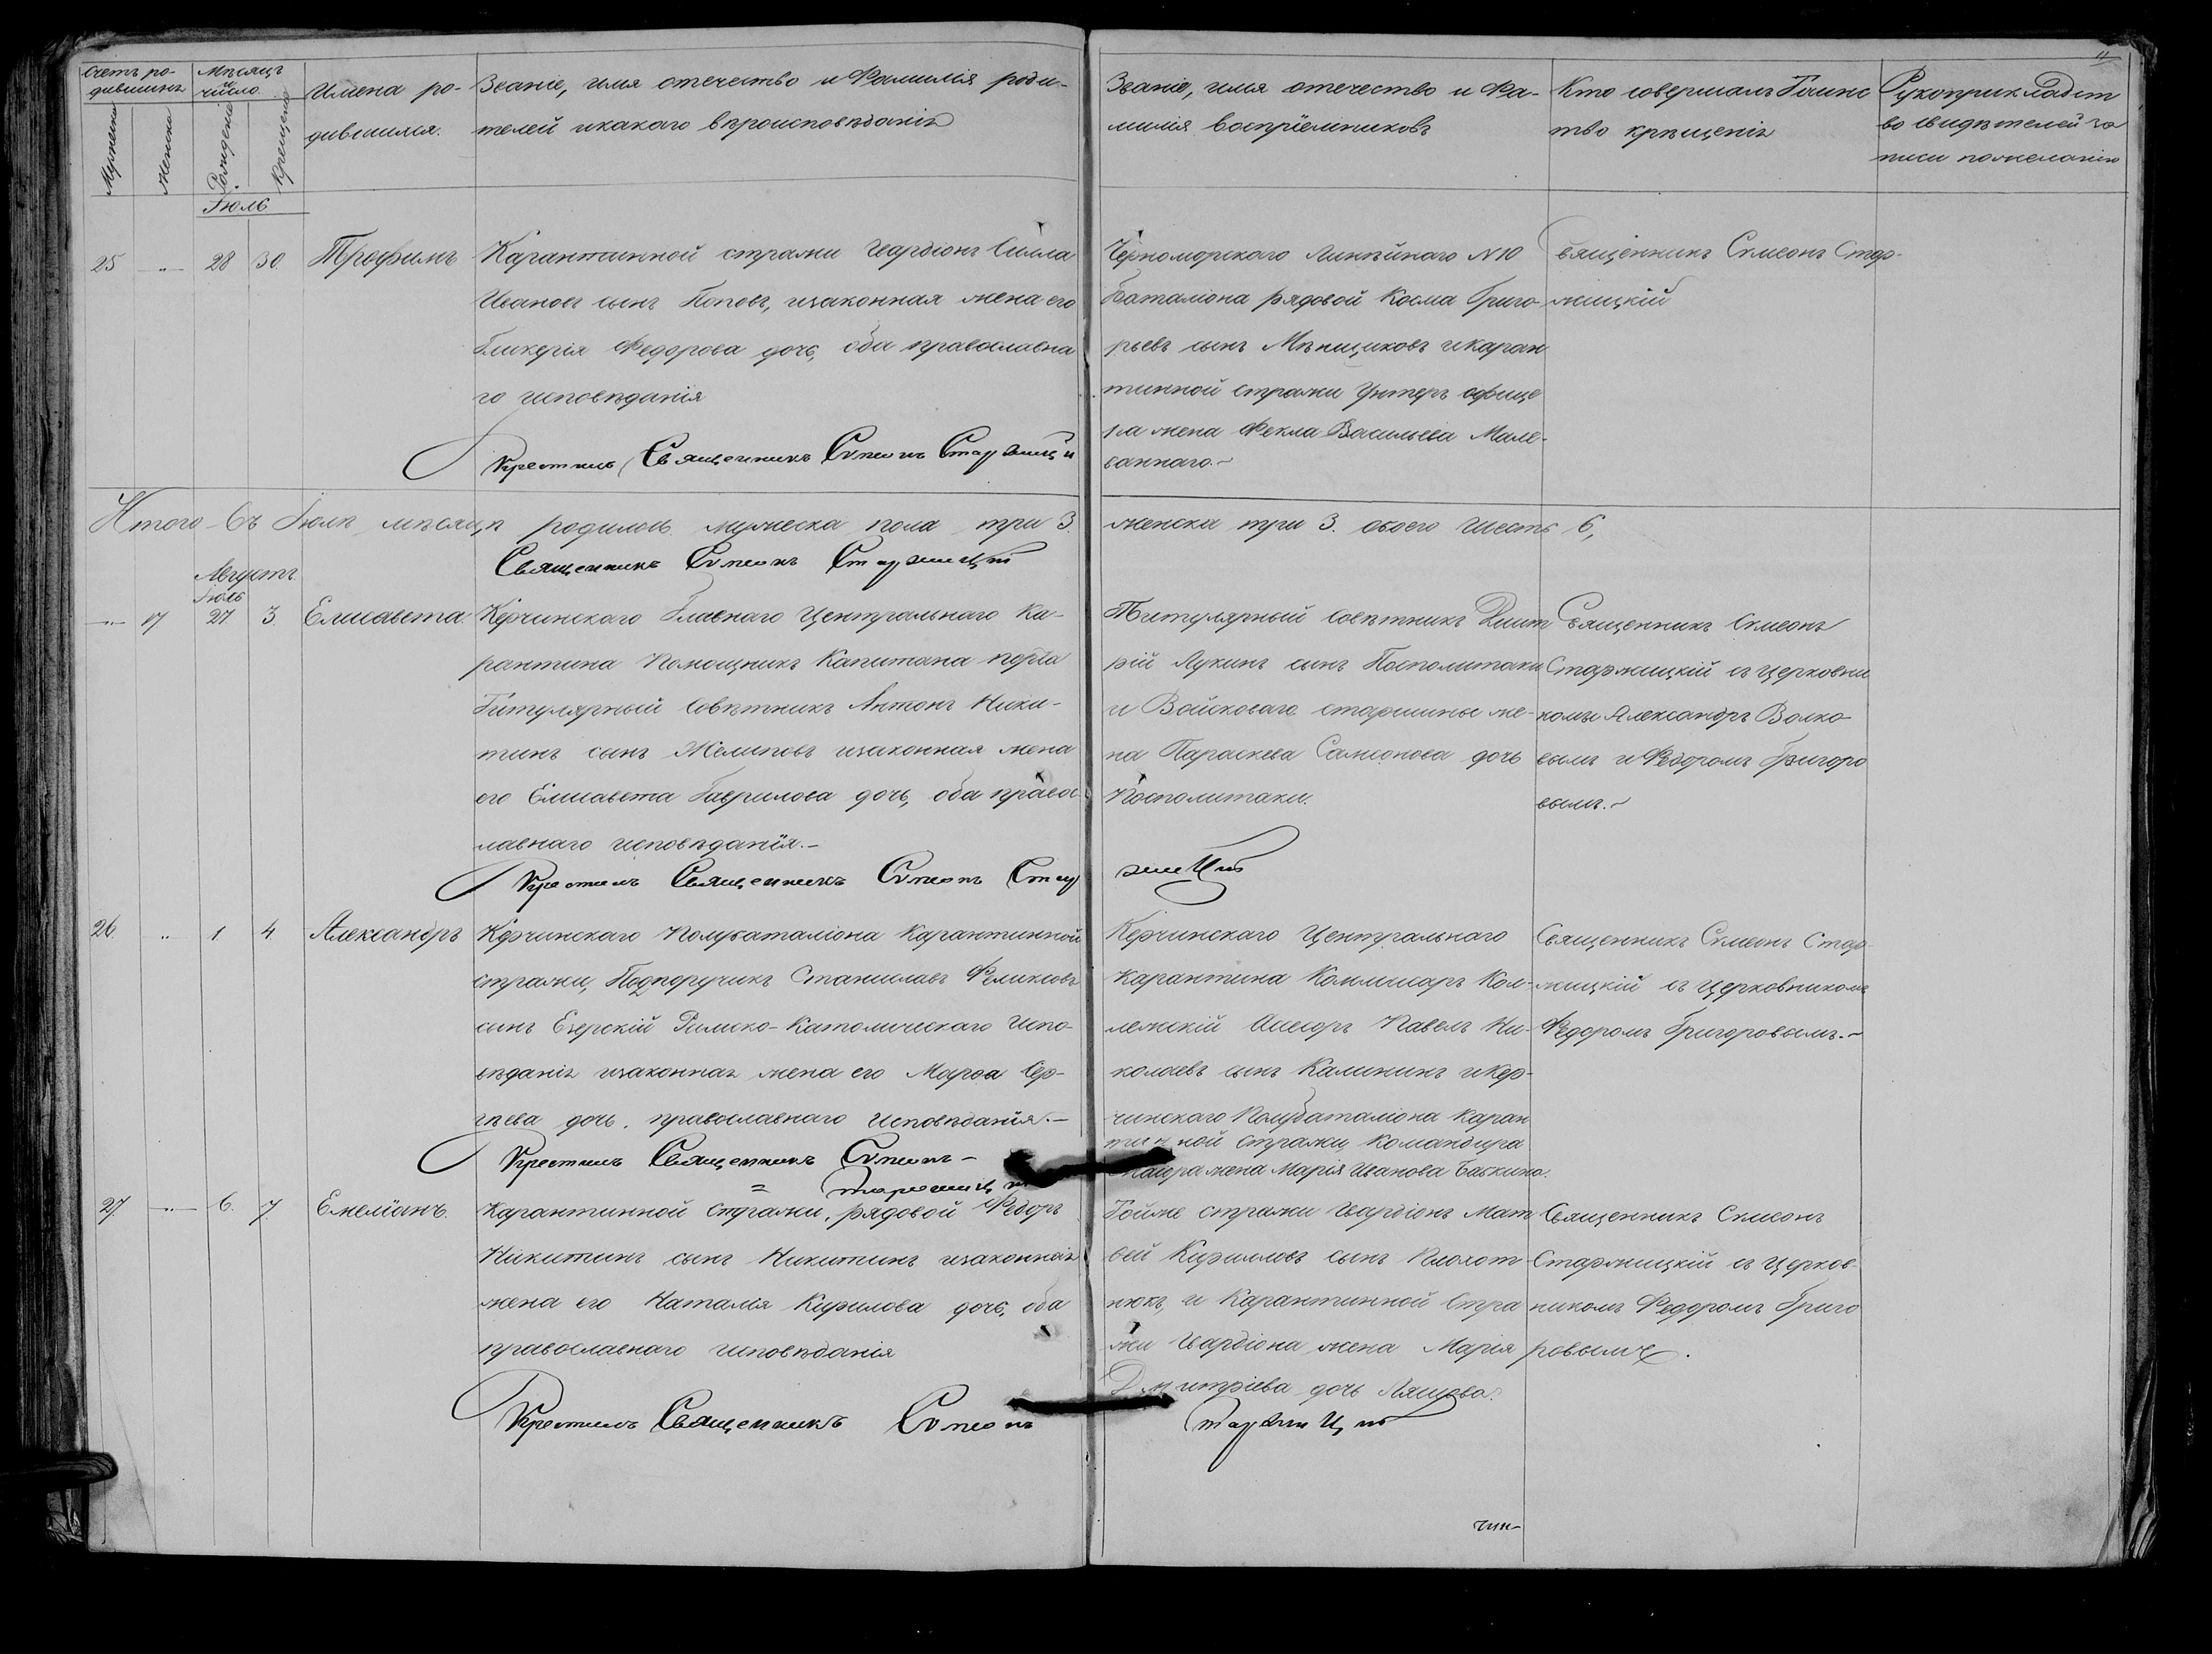 11
Счетъ ро-
дившихъ
Мѣсяцъ
и
число
Имена ро-
дившихся.
Званіе, имя отечество и Фамилія роди-
телей икакаго вѣроисповѣданія
Званіе, имя отечество и Фа-
милія воспріемниковъ
Кто совершалъ Таинс
тво крещенія
Рукоприкладст
во свидѣтелей за
писи пожеланію
Мужеска
Женска
Рожденіе
Крещеніе
Іюль
25 „ 28 30. Трофимъ
Карантинной стражи Гвардіонъ Силла
Ивановъ сынъ Поповъ, изаконная жена его
Гликерія Федорова дочь, оба православна
го исповѣданія
Крестилъ Священникъ Симеонъ Старжицкій
Черноморского Линѣйнаго N 10
Баталіона рядовой Косма Григо-
рьевъ сынъ Мѣнщиковъ икаран
тинной стражи Унтеръ офице
ра жена Фекла Васильева Мале-
ваннаго.~
Священникъ Симеонъ Стар-
жицкій
Итого Въ Іюлѣ мѣсяцѣ родилось мужеска пола три 3. женска три 3. обоего шесть 6,
Священникъ Симеонъ Старжицкій
Августъ
Іюль
„ 17 27 3. Елисавета.
Керчинскаго Главнаго Центральнаго Ка-
рантина Помощникъ Капитана порта
Титулярный Совѣтникъ Антонъ Ники-
тинъ сынъ изаконная жена
его Елисавета Гаврилова дочь, оба правос
лавнаго исповѣданія.-
Крестилъ Священникъ Симеонъ Стар
жицкій
Титулярный Совѣтникъ Димит
рій Лукинъ сынъ Посполитаки
и Войсковаго старшины же-
на Параскева Самсонова дочь
Посполитаки.
Священникъ Симеонъ
Старжицкій съ церковни
комъ Александръ Волко
вымъ и Федоромъ Григоро
вымъ.~
26. „ 1. 4. Александръ
Керчинскаго Полубаталіона Карантинной
стражи, Подпоручикъ Станиславъ Феликсовъ
сынъ Езерскій Римско-Католическаго Испо-
вѣданія изаконная жена его Марѳа Сер-
гѣева дочь. православнаго исповѣданія.-
Крестилъ Священникъ Симеонъ -
= Старжицкій
Керчинскаго Центральнаго
Карантина Коммисаръ Кол-
лежскій Асесоръ Павелъ Ни-
колаевъ сынъ Калининъ икер-
чинскаго Полубаталіона каран
тинной стражи, Командира
Маіора жена Марія Иванова Баскина.
Священникъ Симеонъ Стар-
жицкій съ церковникомъ
Федоромъ Григоровымъ.-~
27. „ 6. 7. Емеліанъ.
Карантинной стражи, рядовой Федоръ
Никитинъ сынъ Никитинъ изаконная
жена его Наталія Кирилова дочь, оба
православнаго исповѣданія
Крестилъ Священникъ Симеонъ
Старжицкій
Тойже стражи Гвардіонъ Мат
вей Кирилловъ сынъ Плохот-
нюкъ, и Карантинной Стра
жи Гвардіона жена Марія
Дмитріева дочь Ляшова.
Священникъ Симеонъ
Старжицкій съ церков-
никомъ Федоромъ Григо
ровымъ.